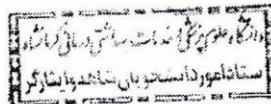 دانشگاه علوم پزشکی و خدمات بهداشتی درمانی کرمانشاه
ستاد امور دانشجویان شاهد و ایثارگر